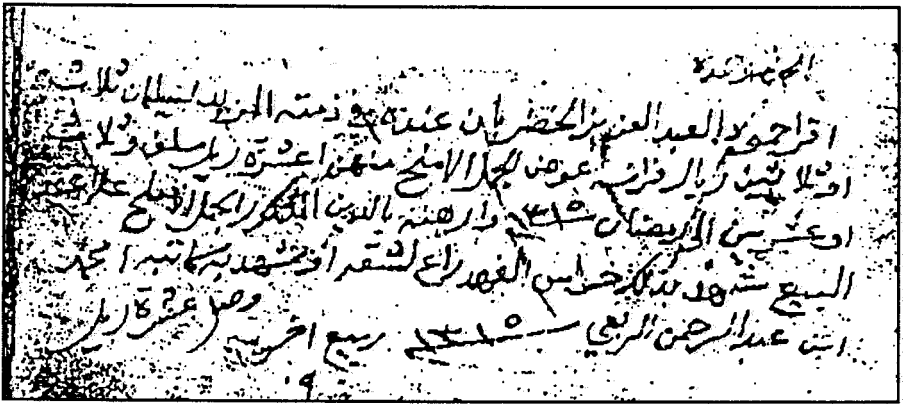 الحمد لله وحده
اقر احمد العبد العزيز الخضر بان عنده في ذمته المزيد لسليمان ثلاث
او ثلاثين ريال فرانسه عوض الجمل الاملح منهن اعشرة ريال سلف وثلاث
او عشرين الى رمضان ١٣١٥ وارهنه بالدين المذكر الجمل الاملح علا عقد
البيع شهد بذلك حواس الفهد راع الشقه او شهد به كاتبه محمد
ابن عبد الرحمن الربعي ١٣١٥ ربيع اخر
وصل عشرة ريال